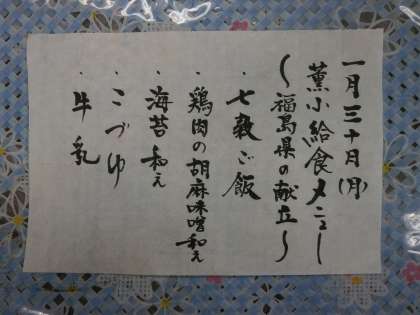 一月三十日(月)
薫小給食メニュー
～福島県の献立～
・七穀ご飯
・鶏肉の胡麻味噌和え
・海苔和え
・こづゆ
・牛乳